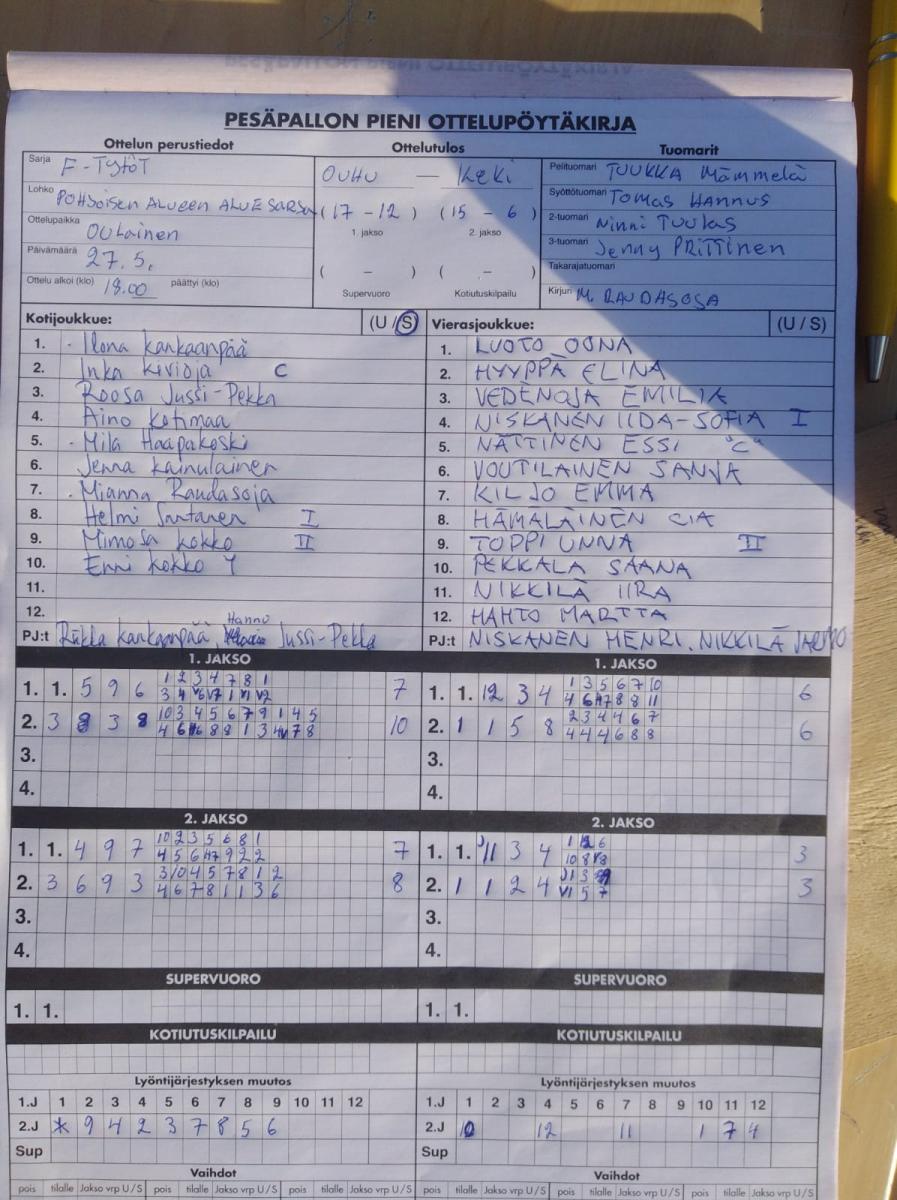 PESÄPALLON PIENI OTTELUPÖYTÄKIRJA
Ottelun perustiedot Ottelutulos Tuomarit
Sarja F-Tytöt
Lohko Pohjoisen Alueen Aluesarja
Ottelupaikka Oulainen
Päivämäärä 27.5.
Ottelu alkoi (klo) 18.00 päättyi (klo)
OuHu — KeKi
(17 - 12) (15 - 6)
1. jakso 2. jakso
( - ) ( - )
Supervuoro Kotiutuskilpailu
Pelituomari TUUKKA Mämmelä
Syöttötuomari Tomas HANNUS
2-tuomari Ninni TUULAS
3-tuomari Jenny PRITTINEN
Takarajatuomari
Kirjuri M. RAUDASOJA
Kotijoukkue: (U / S)
1. Ilona Kankaanpää
2. Inka Kivioja C
3. Roosa Jussi-Pekka
4. Aino Kotimaa
5. Mila Haapakoski
6. Jenna Kainulainen
7. Mianna Raudasoja
8. Helmi Santanen I
9. Mimosa Kokko II
10. Enni Kokko Y
11.
12.
PJ:t Riikka Kankaanpää, Hannu Jussi-Pekka
Vierasjoukkue: (U / S)
1. LUOTO OONA
2. HYYPPÄ ELINA
3. VEDENOJA EMILIA
4. NISKANEN IIDA-SOFIA I
5. NÄTTINEN ESSI "C"
6. VOUTILAINEN SANNA
7. KILJO EMMA
8. HÄMÄLÄINEN CIA
9. TOPPI UNNA II
10. PEKKALA SAANA
11. NIKKILÄ IIRA
12. HAHTO MARTTA
PJ:t NISKANEN HENRI, NIKKILÄ JARMO
1. JAKSO
1. 1. 5 9 6 1 2 3 4 7 8 1 7
2. 3 8 3 8 10 3 4 5 6 7 9 1 4 5 10
3.
4.
1. JAKSO
1. 1. 12 3 4 1 3 5 6 7 10 6
4 6 7 8 8 11
2. 1 1 5 8 2 3 4 4 6 7 6
4 4 4 6 8 8
3.
4.
2. JAKSO
1. 1. 4 9 7 10 2 3 5 6 8 1 7
2. 3 6 9 3 3 10 4 5 7 8 1 2 8
4 6 7 8 1 1 3 6
3.
4.
2. JAKSO
1. 1. 11 3 4 3
2. 1 1 2 4 3
3.
4.
SUPERVUORO SUPERVUORO
1. 1. 1. 1.
KOTIUTUSKILPAILU KOTIUTUSKILPAILU
Lyöntijärjestyksen muutos
1.J 1 2 3 4 5 6 7 8 9 10 11 12
2.J * 9 4 2 3 7 8 5 6
Sup
Lyöntijärjestyksen muutos
1.J 1 2 3 4 5 6 7 8 9 10 11 12
2.J 10 12 11 1 7 4
Sup
Vaihdot Vaihdot
pois tilalle Jakso vrp U / S pois tilalle Jakso vrp U / S pois tilalle pois tilalle Jakso vrp U / S pois tilalle Jakso vrp U / S pois tilalle